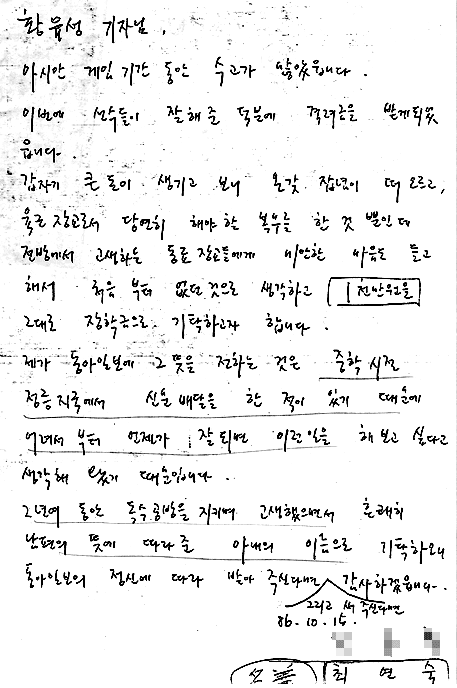 황유성 기자님,
아시안 게임 기간 동안 수고가 많았읍니다.
이번에 선수들이 잘해준 덕분에 격려금을 받게되었
읍니다.
갑자기 큰돈이 생기고 보니 온갖 잡념이 떠오르고,
육군 장교로서 당연히 해야 한 복무를 한 것 뿐인데
전방에서 고생하는 동료 장교들에게 미안한 마음도 들고
해서 처음 부터 없던 것으로 생각하고 1천만원을
그대로 장학금으로 기탁하고자 합니다.
제가 동아일보에 그 뜻을 전하는 것은 중학 시절
정릉지국에서 신문 배달을 한 적이 있기 때문에
어려서 부터 언제가 잘되면 이런일을 해 보고 싶다고
생각해 왔기 때문입니다.
2년여 동안 독수공방을 지키며 고생했으면서 흔쾌히
남편의 뜻에 따라준 아내의 이름으로 기탁하오니
동아일보의 정신에 따라 받아 주신다면 감사하겠읍니다.
그리고 써 주신다면
86.10.15.
최연숙